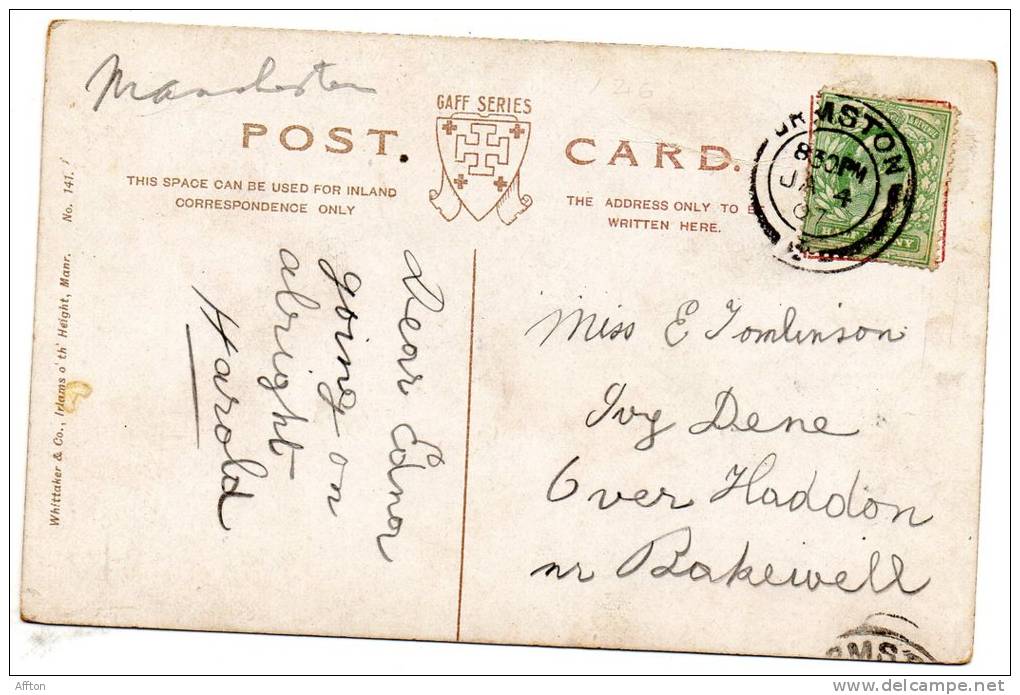 Manchester
GAFF SERIES
POST. CARD.
THIS SPACE CAN BE USED FOR INLAND
CORRESPONDENCE ONLY
THE ADDRESS ONLY TO BE
WRITTEN HERE.
126
URMSTON
8 30 PM
JA 4
07
HALFPENNY
Dear Ednor
going on
alright
Harold
Miss E Tomlinson
Ivy Dene
Over Haddon
nr Bakewell
Whittaker & Co., Irlams o' th' Height, Manr. No. 141.
RMS
Affton
www.delcampe.net